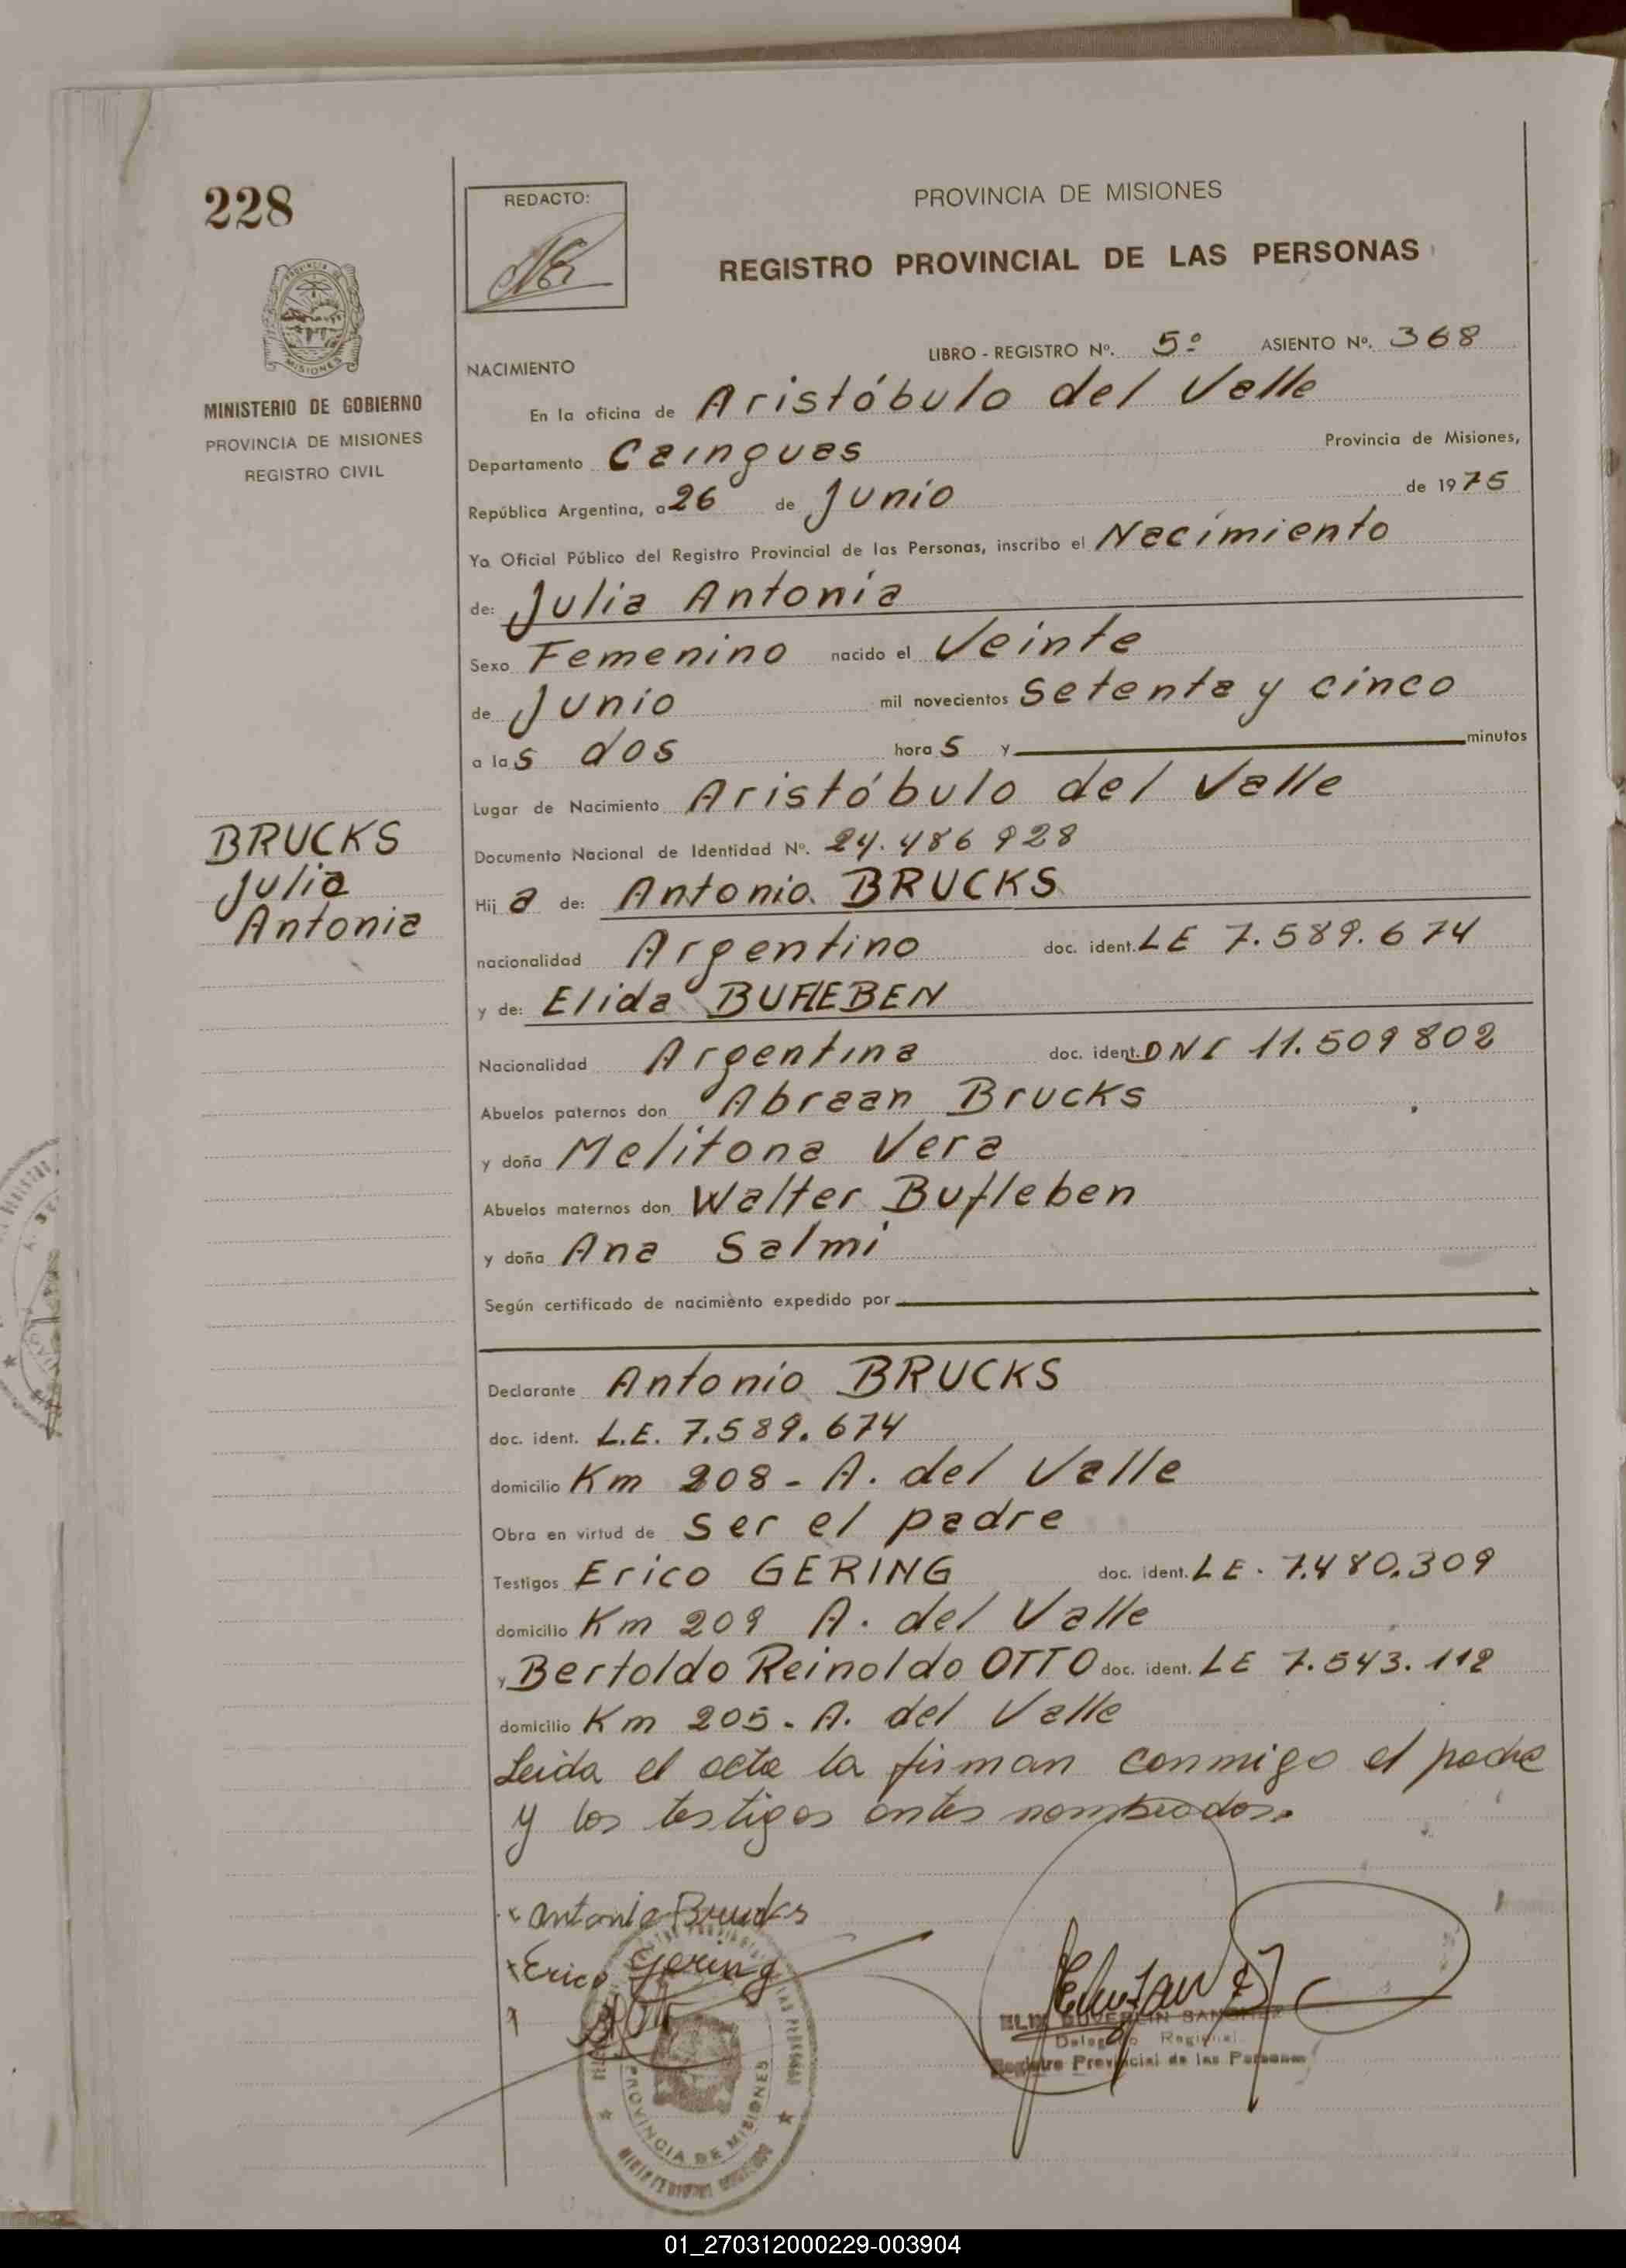 228
REDACTO:
PROVINCIA DE MISIONES
REGISTRO PROVINCIAL DE LAS PERSONAS
MINISTERIO DE GOBIERNO
PROVINCIA DE MISIONES
REGISTRO CIVIL
LIBRO - REGISTRO Nº. 5º ASIENTO Nº. 368
NACIMIENTO
En la oficina de Aristóbulo del Valle
Departamento Cainguas Provincia de Misiones,
República Argentina, a 26 de Junio de 1975
Yo Oficial Público del Registro Provincial de las Personas, inscribo el Nacimiento
de: Julia Antonia
Sexo Femenino nacido el Veinte
de Junio mil novecientos Setenta y cinco
a las dos horas y minutos
Lugar de Nacimiento Aristóbulo del Valle
BRUCKS
Julia
Antonia
Documento Nacional de Identidad Nº. 24.486 928
Hija de: Antonio BRUCKS
nacionalidad Argentino doc. ident. LE 7.589.674
y de: Elida BUFLEBEN
Nacionalidad Argentina doc. ident. DNI 11.509 802
Abuelos paternos don Abraan Brucks
y doña Melitona Vera
Abuelos maternos don Walter Bufleben
y doña Ana Salmi
Según certificado de nacimiento expedido por
Declarante Antonio BRUCKS
doc. ident. L.E. 7.589.674
domicilio Km 208 - A. del Valle
Obra en virtud de ser el padre
Testigos Erico GERING doc. ident. LE. 7.480.309
domicilio Km 209 A. del Valle
y Bertoldo Reinoldo OTTO doc. ident. LE 7.543.112
domicilio Km 205 - A. del Valle
Leida el acta la firman conmigo el padre
y los testigos antes nombrados.
Antonio Brucks
Erico Gering
Delegado Regional
Registro Provincial de las Personas
PROVINCIA DE MISIONES
01_270312000229-003904